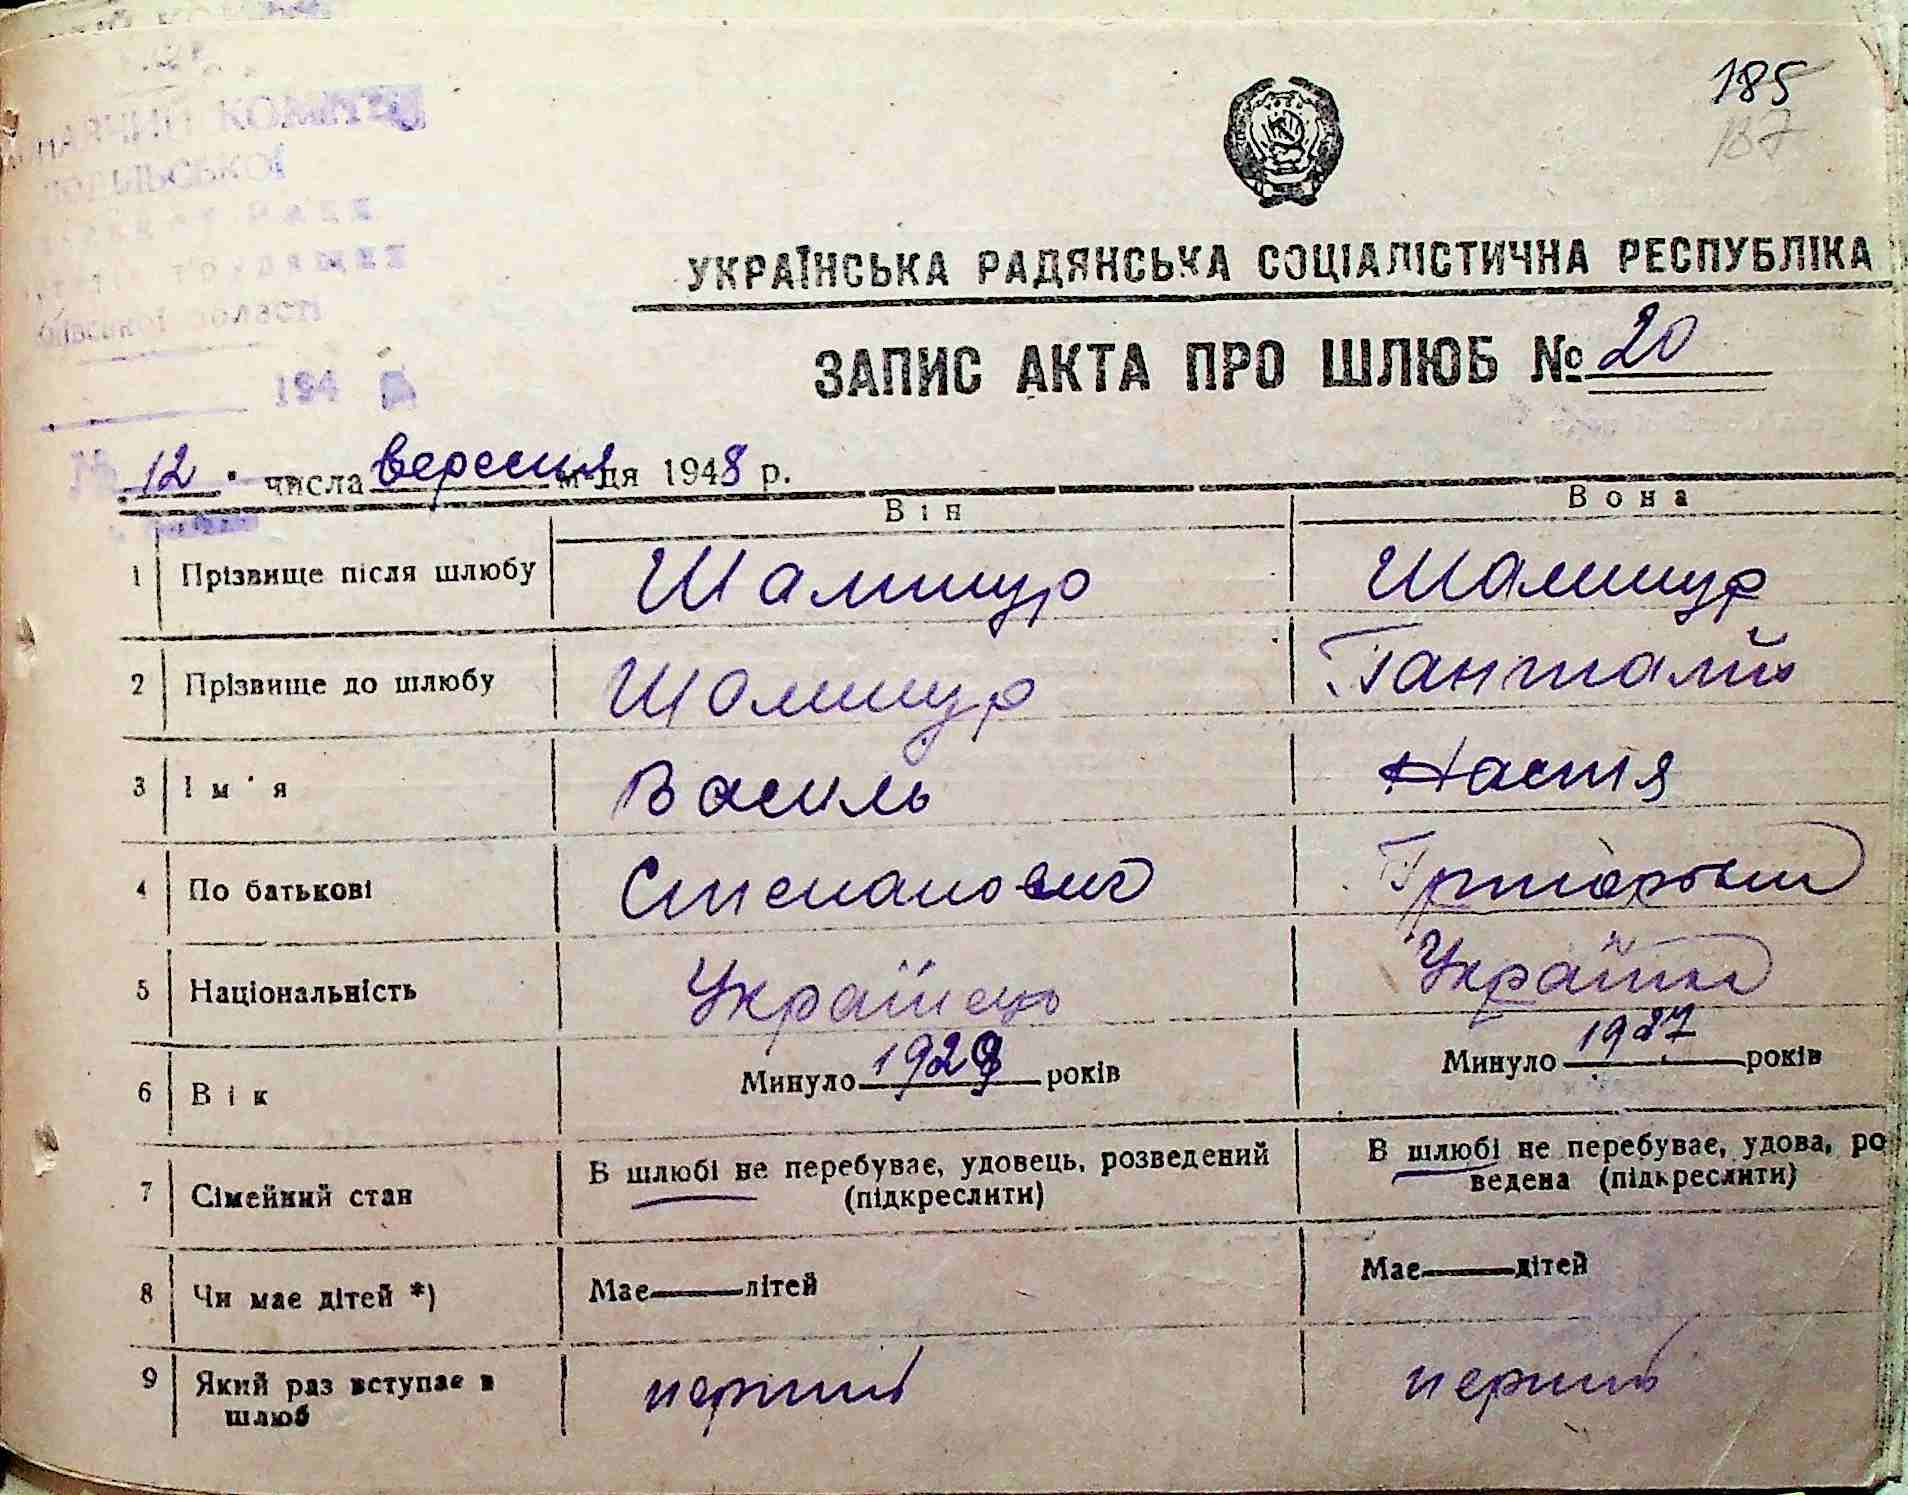 185
187
КОМІТЕ
194
УКРАЇНСЬКА РАДЯНСЬКА СОЦІАЛІСТИЧНА РЕСПУБЛІКА
ЗАПИС АКТА ПРО ШЛЮБ № 20
12 числа вересня м-ця 1948 р.
Він Вона
1 Прізвище після шлюбу Шамшур Шамшур
2 Прізвище до шлюбу Шамшур Ганталій
3 Ім'я Василь Настя
4 По батькові Степанович
5 Національність Українець Українка
6 Вік Минуло 1929 років Минуло 1927 років
7 Сімейний стан В шлюбі не перебуває, удовець, розведений В шлюбі не перебуває, удова, ро
(підкреслити) ведена (підкреслити)
8 Чи має дітей *) Має—дітей Має—дітей
9 Який раз вступає в перший перший
шлюб